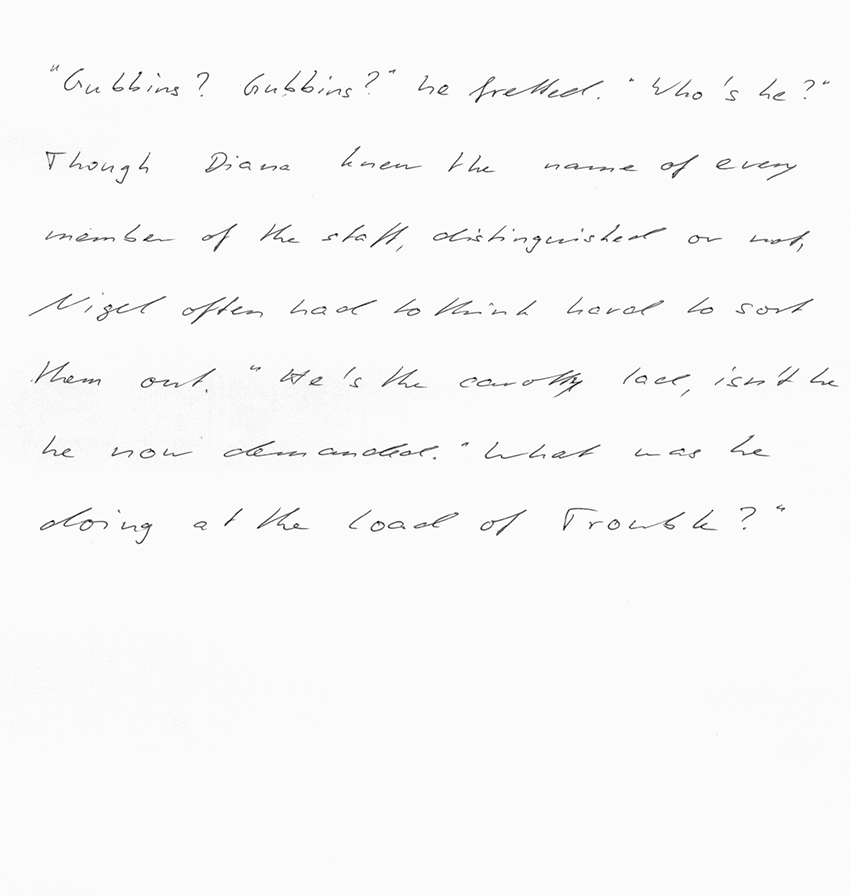 "Gubbins? Gubbins?" he fretted. "Who's he?"
Though Diana knew the name of every
member of the staff, distinguished or not,
Nigel often had to think hard to sort
them out. "He's the carotty lad, isn't he
he now demanded. "What was he
doing at the Load of Trouble?"